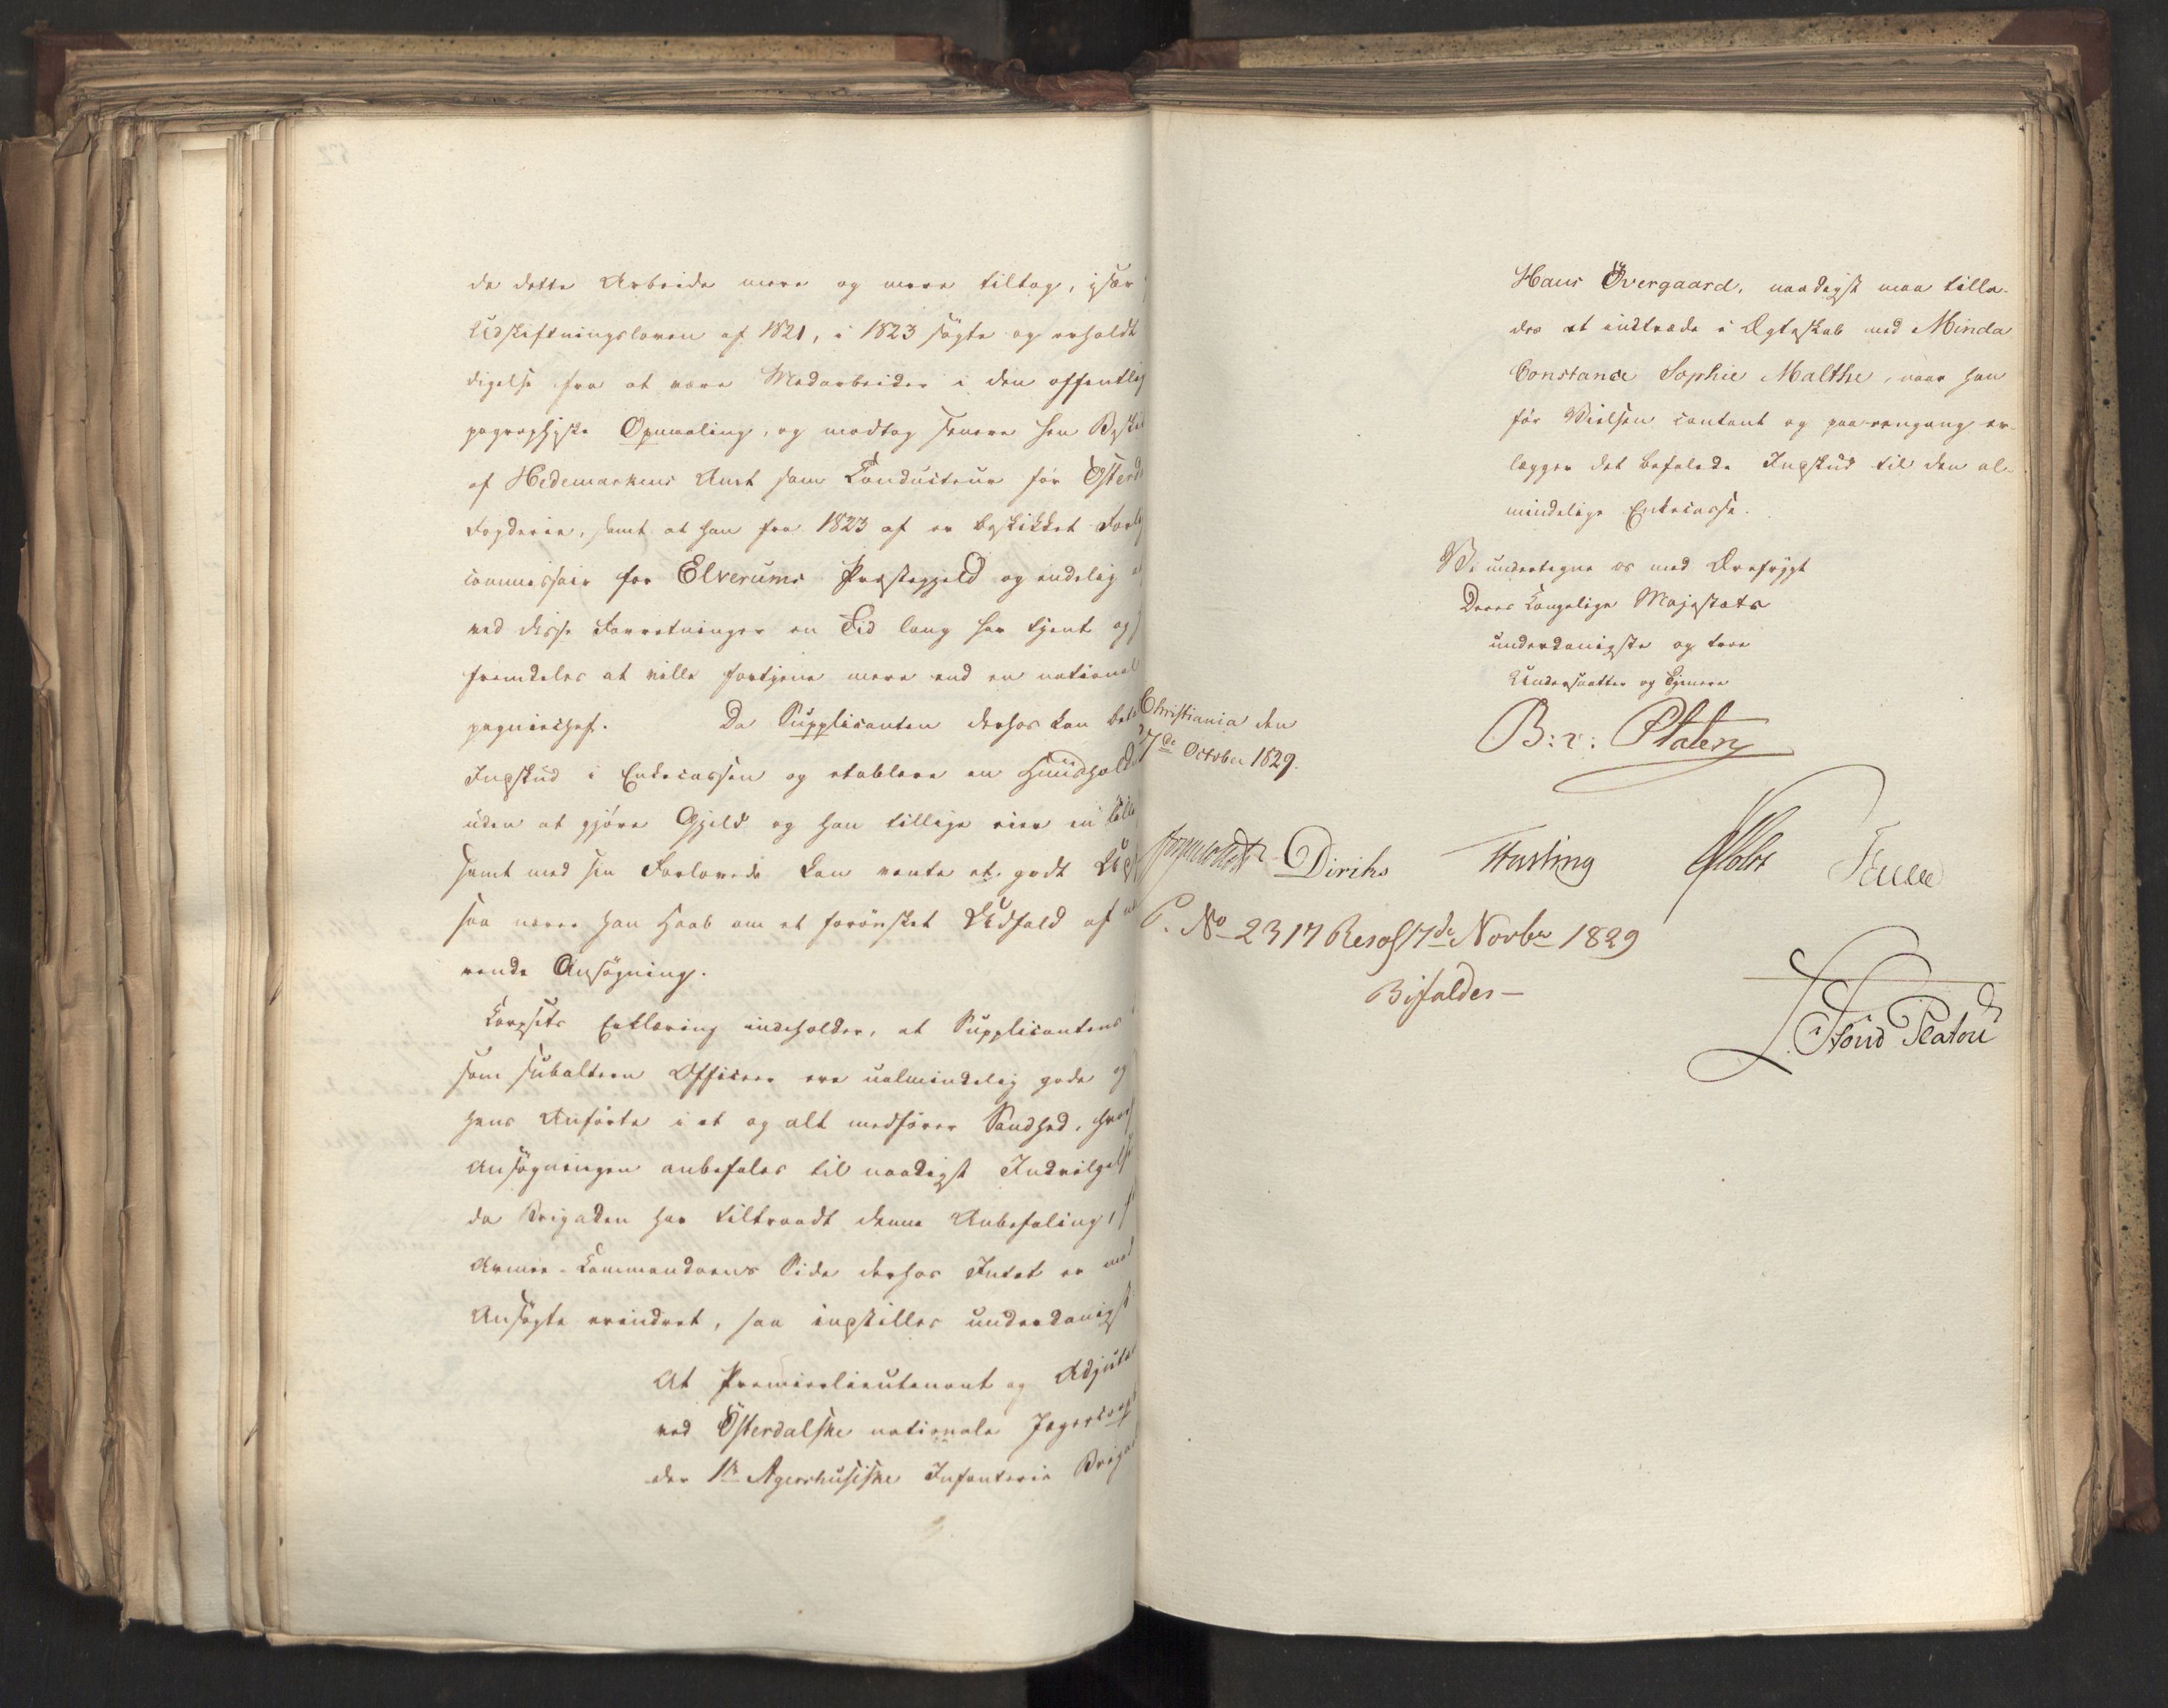 da dette Arbeide mere og mere tiltog, især
Udskiftningsloven af 1821, i 1823 søgte og erholdt
digelse fra at være Medarbeider i den offentlig
pographiske Opmaaling, og modtog senere hen Beskik
af Hedemarkens Amt som Conducteur for Østerd
Fogderie, samt at han fra 1823 af er beskikket Forlig
commissair for Elverums Præstegjeld og endelig a
ved disse Forretninger en Tid lang har tjent og
fremdeles at ville fortjene mere end en national
pagniechef. Da Supplicanten derhos kan beta
Indskud i Enkecassen og etablere en Huusholdn
uden at gjøre Gjeld og han tillige eier en lille
samt med sin Forlovede kan vente et godt Udst
saa nærer han Haab om et forønsket Udfald af næ
rende Ansøgning.
Corpsets Erklæring indeholder, at Supplicantens
som subaltern Officeer ere ualmindelig gode og
hans Anførte i et og alt medfører Sandhed, hvorf
Ansøgningen anbefales til naadigst Indvilgelse
da Brigaden har tiltraadt denne Anbefaling, f
Armee-Commandoens Side derhos Intet er mod
Ansøgte erindret, saa indstilles underdanigst
At Premierlieutenant og Adjuta
ved Østerdalske nationale Jægercorps
der 1te Agershusiske Infanterie Brigad
Hans Øvergaard, naadigst maa tilla-
des at indtræde i Ægteskab med Minda
Constance Sophie Malthe, naar han
før Vielsen contant og paa eengang er-
lægger det befalede Indskud til den al-
mindelige Enkecasse.
Vi undertegne os med Ærefrygt
Deres Kongelige Majestæts
underdanigste og troe
Undersaatter og Tjenere
Christiania den
27de October 1829.
B: v: Platen
Diriks Fasting Holst
P. No 2317 Resol 17de Novbr 1829
Bifaldes —
Stoud Platou